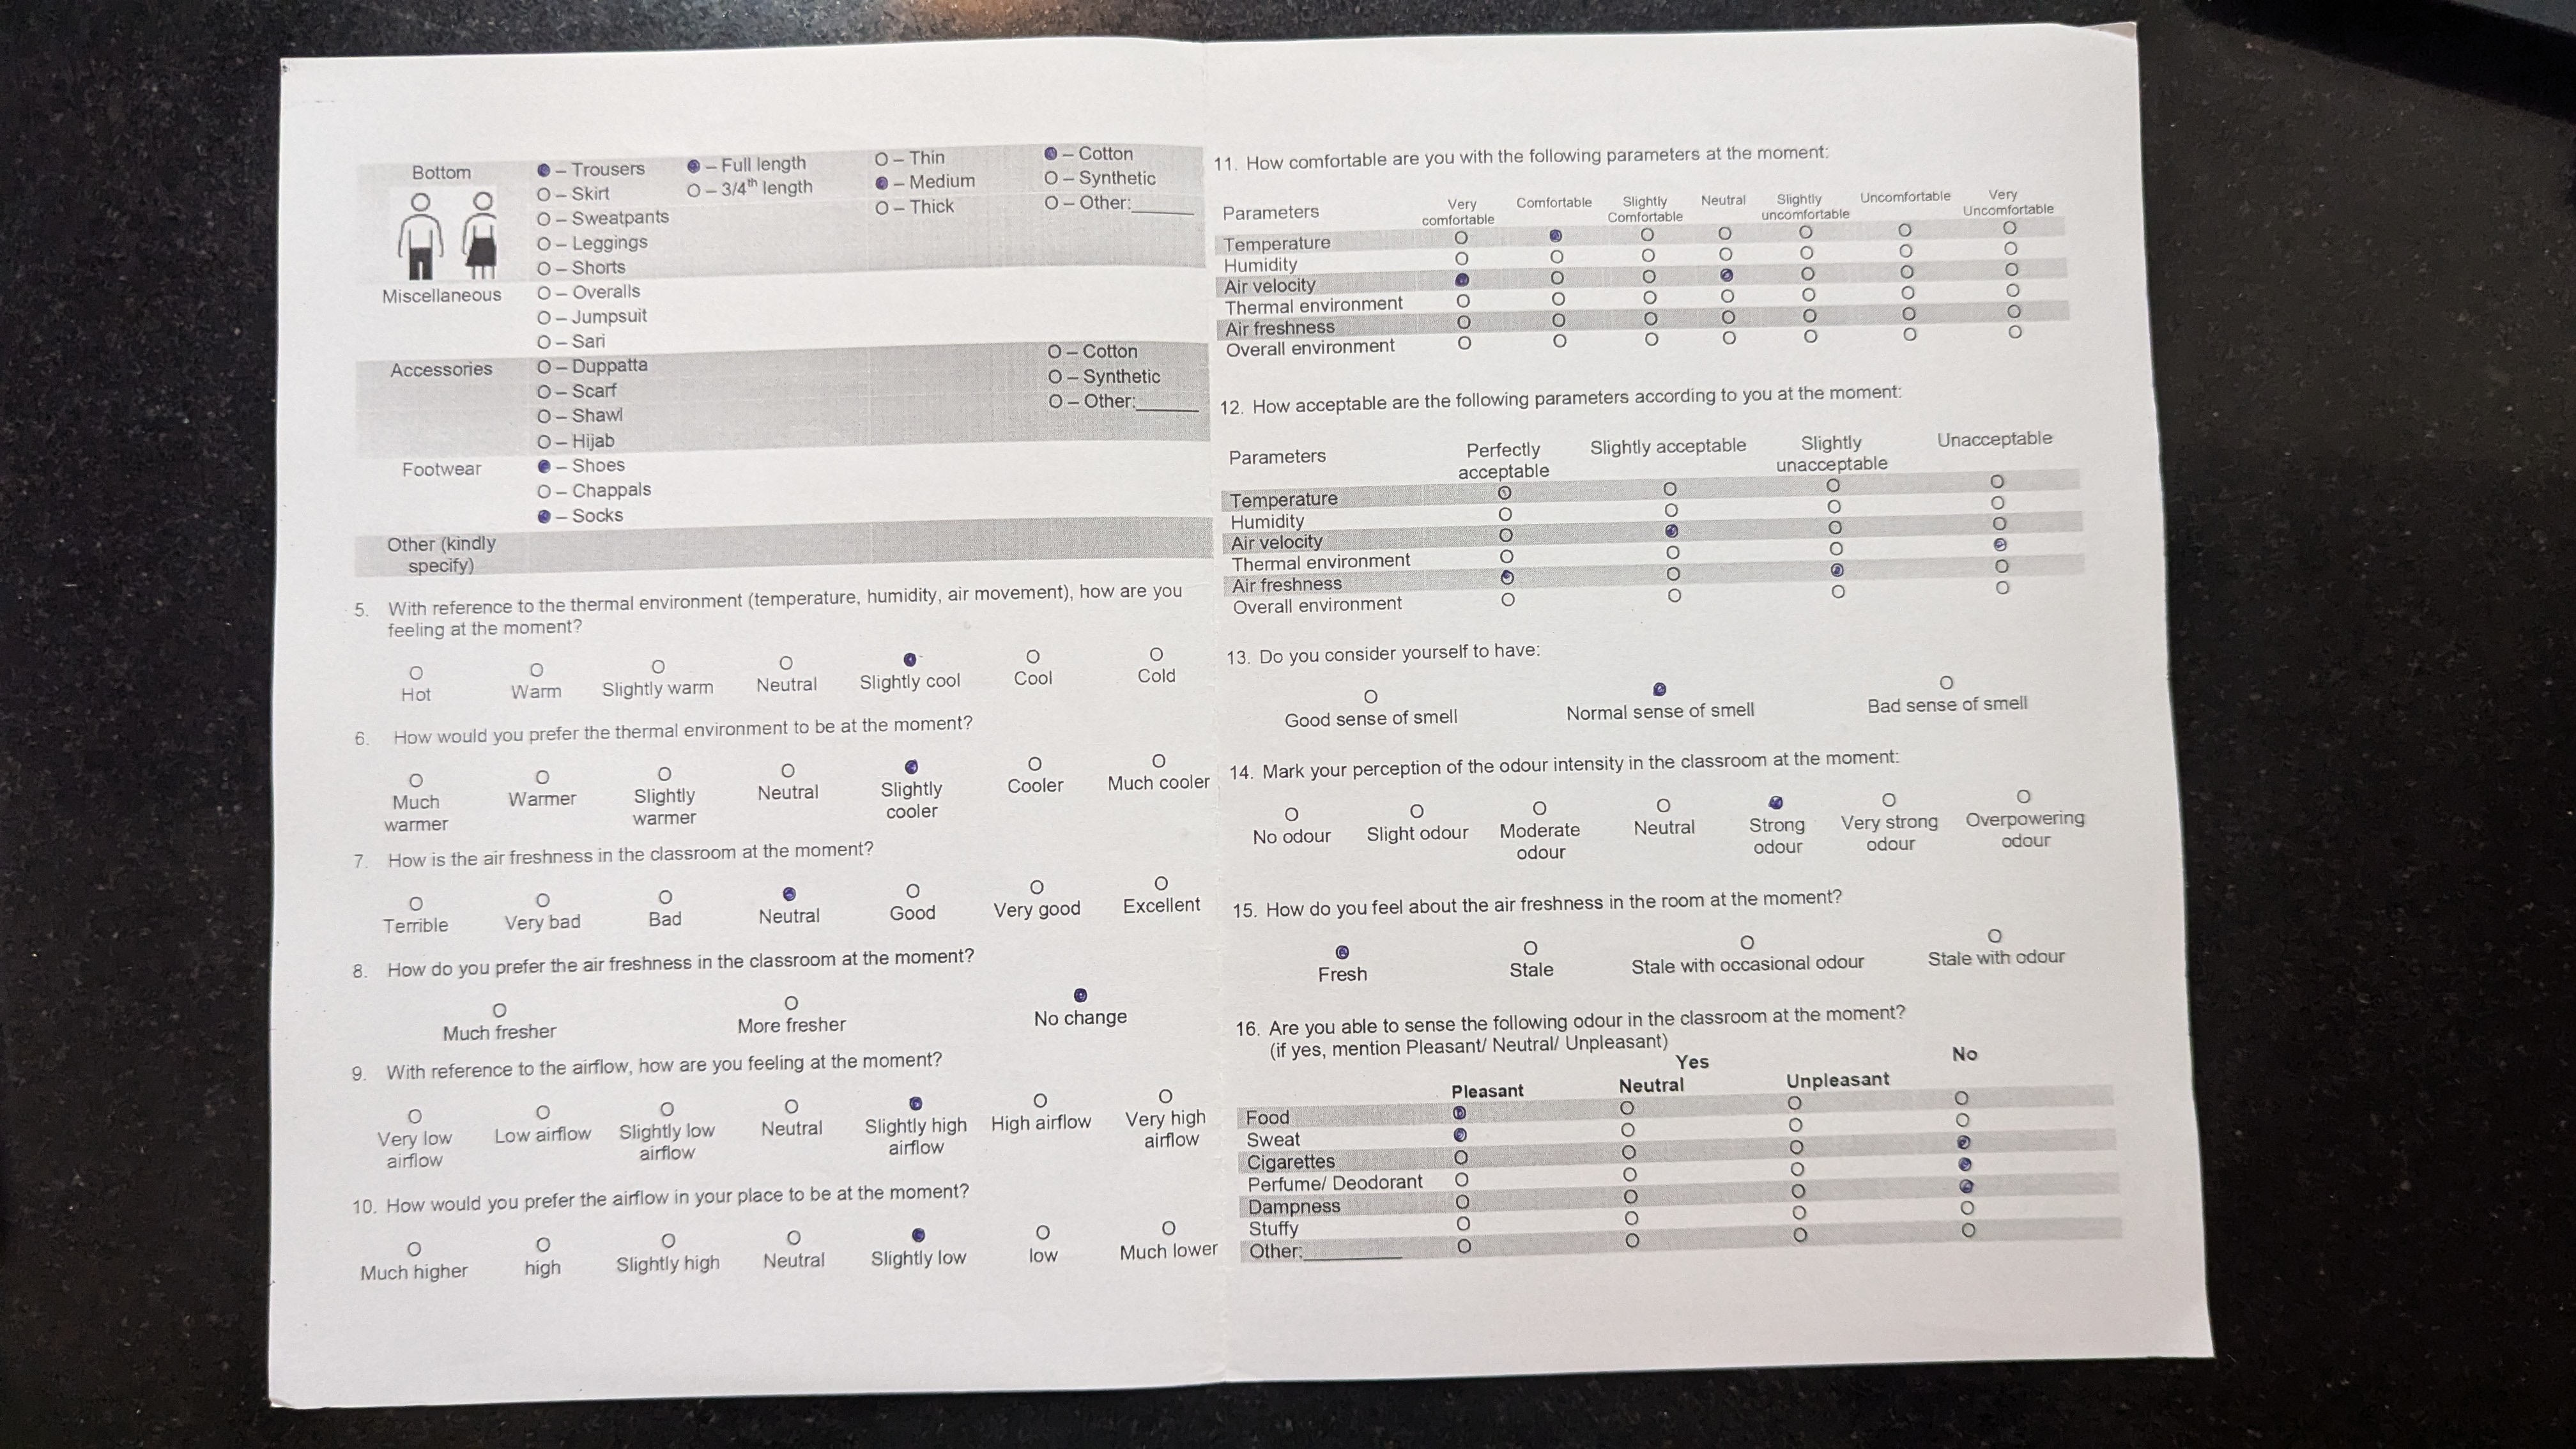 Bottom
O – Trousers
O – Skirt
O – Sweatpants
O – Leggings
O – Shorts
O – Full length
O – 3/4th length
O – Thin
O – Medium
O – Thick
O – Cotton
O – Synthetic
O – Other:______
Miscellaneous
O – Overalls
O – Jumpsuit
O – Sari
Accessories
O – Duppatta
O – Scarf
O – Shawl
O – Hijab
O – Cotton
O – Synthetic
O – Other:______
Footwear
O – Shoes
O – Chappals
O – Socks
Other (kindly
specify)
5. With reference to the thermal environment (temperature, humidity, air movement), how are you
feeling at the moment?
O O O O O O O
Hot Warm Slightly warm Neutral Slightly cool Cool Cold
6. How would you prefer the thermal environment to be at the moment?
O O O O O O O
Much warmer Warmer Slightly warmer Neutral Slightly cooler Cooler Much cooler
7. How is the air freshness in the classroom at the moment?
O O O O O O O
Terrible Very bad Bad Neutral Good Very good Excellent
8. How do you prefer the air freshness in the classroom at the moment?
O O O
Much fresher More fresher No change
9. With reference to the airflow, how are you feeling at the moment?
O O O O O O O
Very low airflow Low airflow Slightly low airflow Neutral Slightly high airflow High airflow Very high airflow
10. How would you prefer the airflow in your place to be at the moment?
O O O O O O O
Much higher high Slightly high Neutral Slightly low low Much lower
11. How comfortable are you with the following parameters at the moment:
Parameters Very comfortable Comfortable Slightly Comfortable Neutral Slightly uncomfortable Uncomfortable Very Uncomfortable
Temperature O O O O O O O
Humidity O O O O O O O
Air velocity O O O O O O O
Thermal environment O O O O O O O
Air freshness O O O O O O O
Overall environment O O O O O O O
12. How acceptable are the following parameters according to you at the moment:
Parameters Perfectly acceptable Slightly acceptable Slightly unacceptable Unacceptable
Temperature O O O O
Humidity O O O O
Air velocity O O O O
Thermal environment O O O O
Air freshness O O O O
Overall environment O O O O
13. Do you consider yourself to have:
O O O
Good sense of smell Normal sense of smell Bad sense of smell
14. Mark your perception of the odour intensity in the classroom at the moment:
O O O O O O O
No odour Slight odour Moderate odour Neutral Strong odour Very strong odour Overpowering odour
15. How do you feel about the air freshness in the room at the moment?
O O O O
Fresh Stale Stale with occasional odour Stale with odour
16. Are you able to sense the following odour in the classroom at the moment?
(if yes, mention Pleasant/ Neutral/ Unpleasant)
Yes No
Pleasant Neutral Unpleasant
Food O O O O
Sweat O O O O
Cigarettes O O O O
Perfume/ Deodorant O O O O
Dampness O O O O
Stuffy O O O O
Other:__________ O O O O